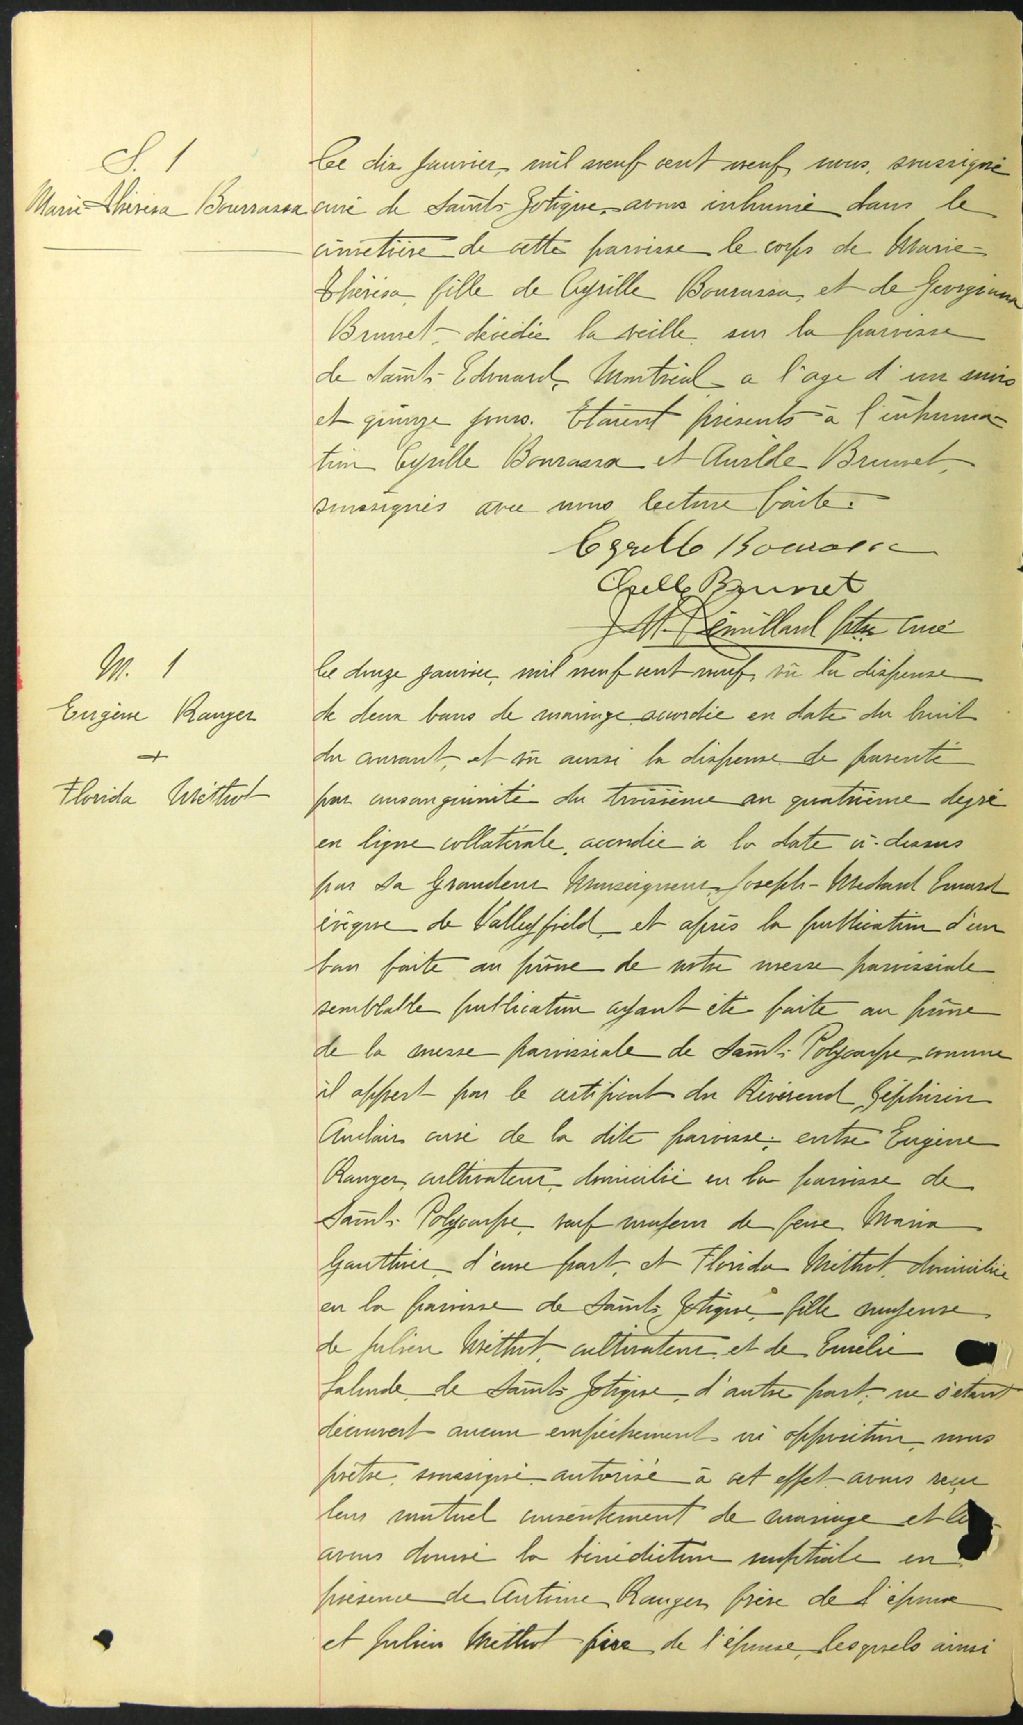 S. 1
Marie-Thérésa Bourrassa
Le dix janvier, mil neuf cent neuf, nous, soussigné
curé de Saint-Zotique, avons inhumé dans le
cimetière de cette paroisse le corps de Marie-
Thérésa, fille de Cyrille Bourassa, et de Georgiana
Brunet, décédée la veille, sur la paroisse
de Saint-Edouard, Montréal, a l'age d'un mois
et quinze jours. Etaient présents à l'inhuma-
tion Cyrille Bourassa et Brunet,
soussignés avec nous lecture faite.
Cyrille Bourassa
Brunet
J. M. Rémillard ptre curé
M. 1
Eugène Ranger
+
Florida Méthot
Le douze janvier, mil neuf cent neuf, vû la dispense
de deux bans de mariage accordée en date du huit
du courant, et vû aussi la dispense de parenté
par consanguinité du troisième au quatrième degré
en ligne collatérale, accordée à la date ci-dessus
par Sa Grandeur Monseigneur Joseph-Médard Emard
évêque de Valleyfield, et après la publication d'un
ban faite au prône de notre messe paroissiale
semblable publication ayant été faite au prône
de la messe paroissiale de Saint-Polycarpe, comme
il appert par le certificat du Révérend Zéphirin
Auclair, curé de la dite paroisse; entre Eugène
Ranger, cultivateur, domicilié en la paroisse de
Saint-Polycarpe, veuf majeur de feue Maria
Gauthier, d'une part, et Florida Méthot, domiciliée
en la paroisse de Saint-Zotique, fille majeure
de Julien Méthot, cultivateur, et de Emélie
Lalonde, de Saint-Zotique, d'autre part; ne s'étant
découvert aucun empêchement ni opposition, nous
prêtre, soussigné autorisé à cet effet avons reçu
leur mutuel consentement de mariage et
avons donné la bénédiction nuptiale en
présence de Antoine Ranger, frère de l'époux
et Julien Méthot père de l'épouse, lesquels ainsi